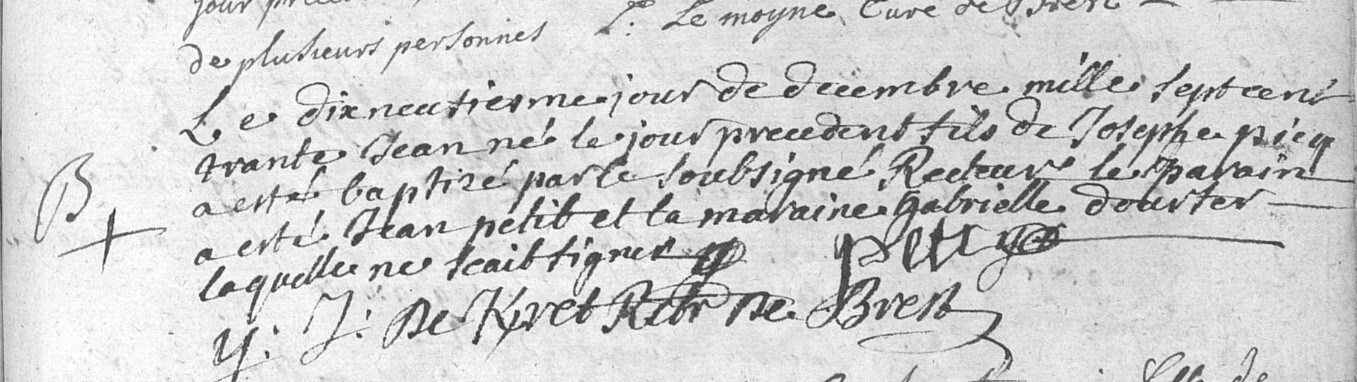 jour
de plusieurs personnes Le moyne Curé de Brest
Le dixneufiesme jour de decembre mille sept cent
trante Jean né le jour precedent fils de Josephe picq
B a esté baptizé par le soubsigné Recteur le parain
a esté Jean petit et la maraine Gabrielle dourter
laquelle ne scait signer petit
Y: J: De Kret Rctr De Brest